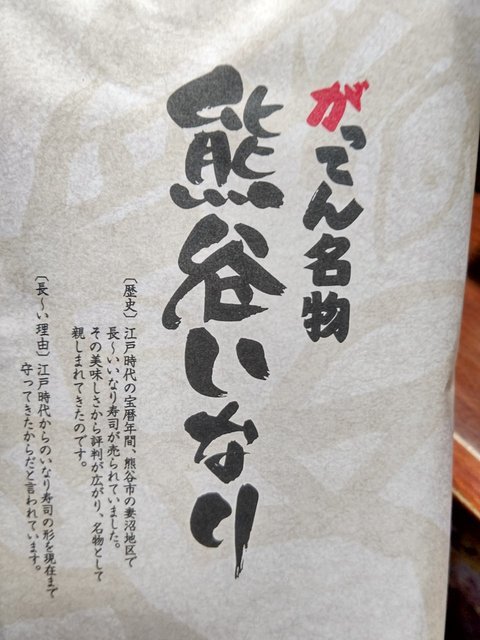 がってん名物
熊谷いなり
〔歴史〕江戸時代の宝暦年間、熊谷市の妻沼地区で
長〜いいなり寿司が売られていました。
その美味しさから評判が広がり、名物として
親しまれてきたのです。
〔長〜い理由〕江戸時代からのいなり寿司の形を現在まで
守ってきたからだと言われています。